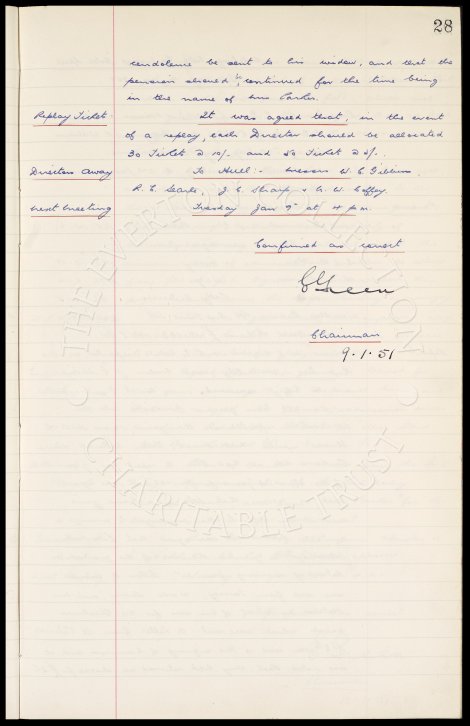 28
condolence be sent to his widow, and that the
pension should be continued for the time being
in the name of Mrs Parker.
Replay Tickets. It was agreed that, in the event
of a replay, each Director should be allocated
30 Tickets @ 10/- and 50 Tickets @ 2/-.
Directors Away To Hull:- Messrs W. C. Gibbins.
R. E. Searle, J. C. Sharp & C. W. Coffey
Next Meeting Tuesday Jan 9th at 4 pm.
Confirmed as correct
C Green
Chairman
9.1.51
THE EVERTON COLLECTION
CHARITABLE TRUST